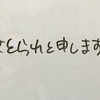 さとられと申します